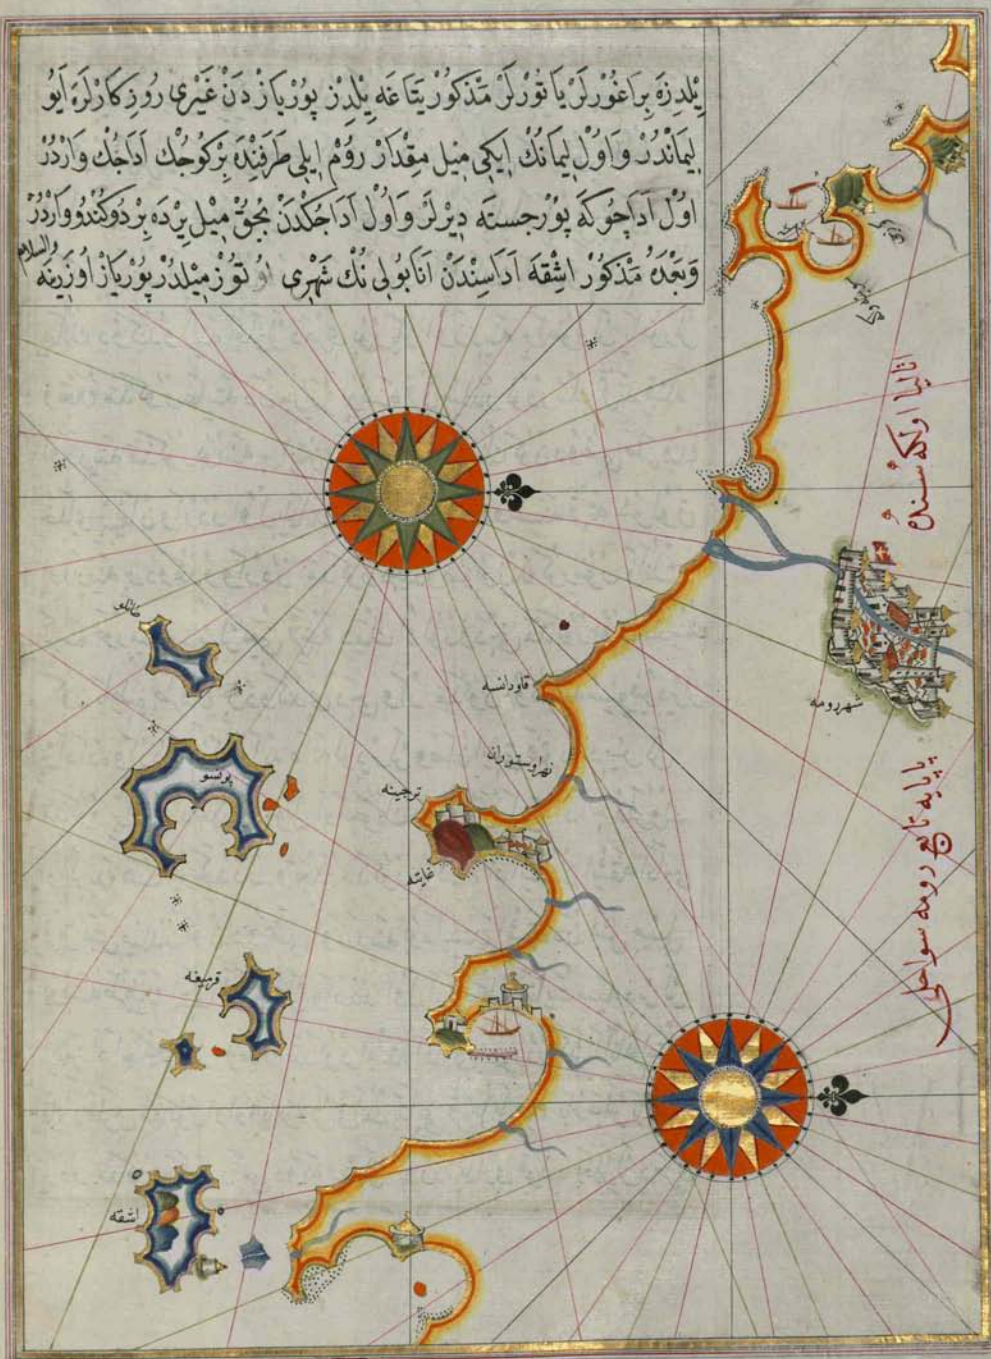 یِلْدِزَه بِرَاغُورْلَرْ یَا تُورْلَرْ مَذْکُورْ یَتَاغَه یِلْدِزْ پُورْیَازْ دَنْ غَیْرِی رُوزِکَارْلَرَه اَیُو
لِیمَانْدُرْ وَاَوُلْ لِیمَانُكْ اِیکِی مِیلْ مِقْدَارْ رُومْ اِیلِی طَرَفِنْدَه بِرْکُوجُكْ اَدَاجُكْ وَارْدُرْ
اَوُلْ اَدَاجُوکَه پُورْجِسْتَه دِیرْلَرْ وَاَوُلْ اَدَاجَكْدَنْ بُجُقْ مِیلْ یِرْدَه بِرْ دُوکُنْدُو وَارْدُرْ
وَبَعْدَهُ مَذْکُورْ اِشْقَه اَدَاسِنْدَنْ اَنَابُولِی نُكْ شَهْرِی اُو تُوزْ مِیلْدُرْ پُورْیَازْ اُوزَرِینَه
والسلام
اتالیا اولکه سنده
شهر رومه
پاپایه تابع رومه سواحلی
قاودانسه
نهر اوستوران
ترجینه
غایته
پونسو
قرمیغه
اشقه